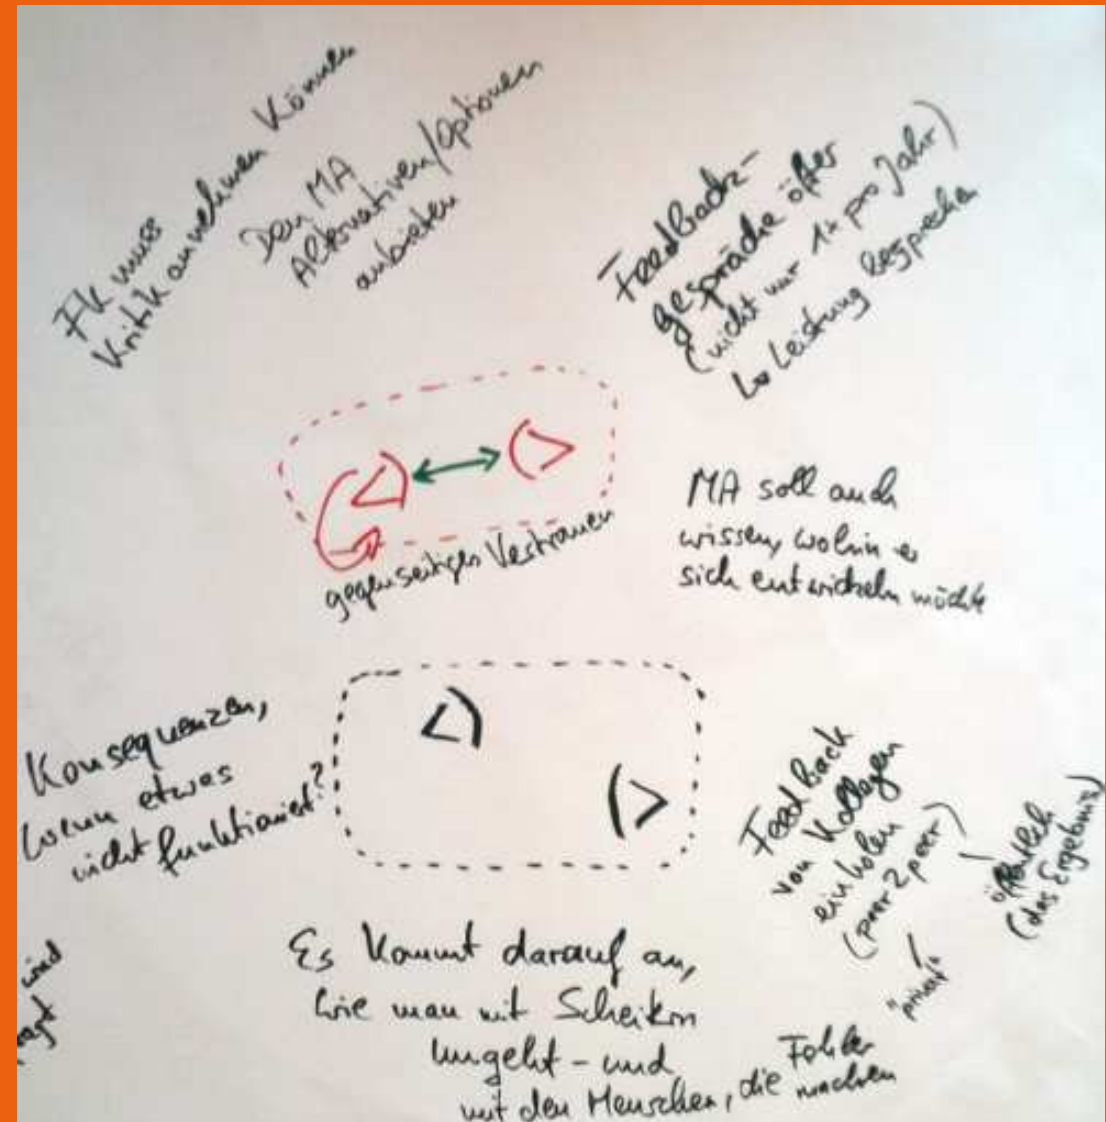 FK muss
Kritik annehmen können
Den MA
Alternativen/Optionen
anbieten
Feedback-
gespräche öfter
(nicht nur 1x pro Jahr)
Leistung besprechen
gegenseitiges Vertrauen
MA soll auch
wissen, wohin er
sich entwickeln möchte
Konsequenzen,
wenn etwas
nicht funktioniert?
Feedback
von Kollegen
einholen
(peer 2 peer)
"privat"
öffentlich
(das Ergebnis)
wird
Es kommt darauf an,
wie man mit Scheitern
umgeht - und
mit den Menschen, die Fehler
machen